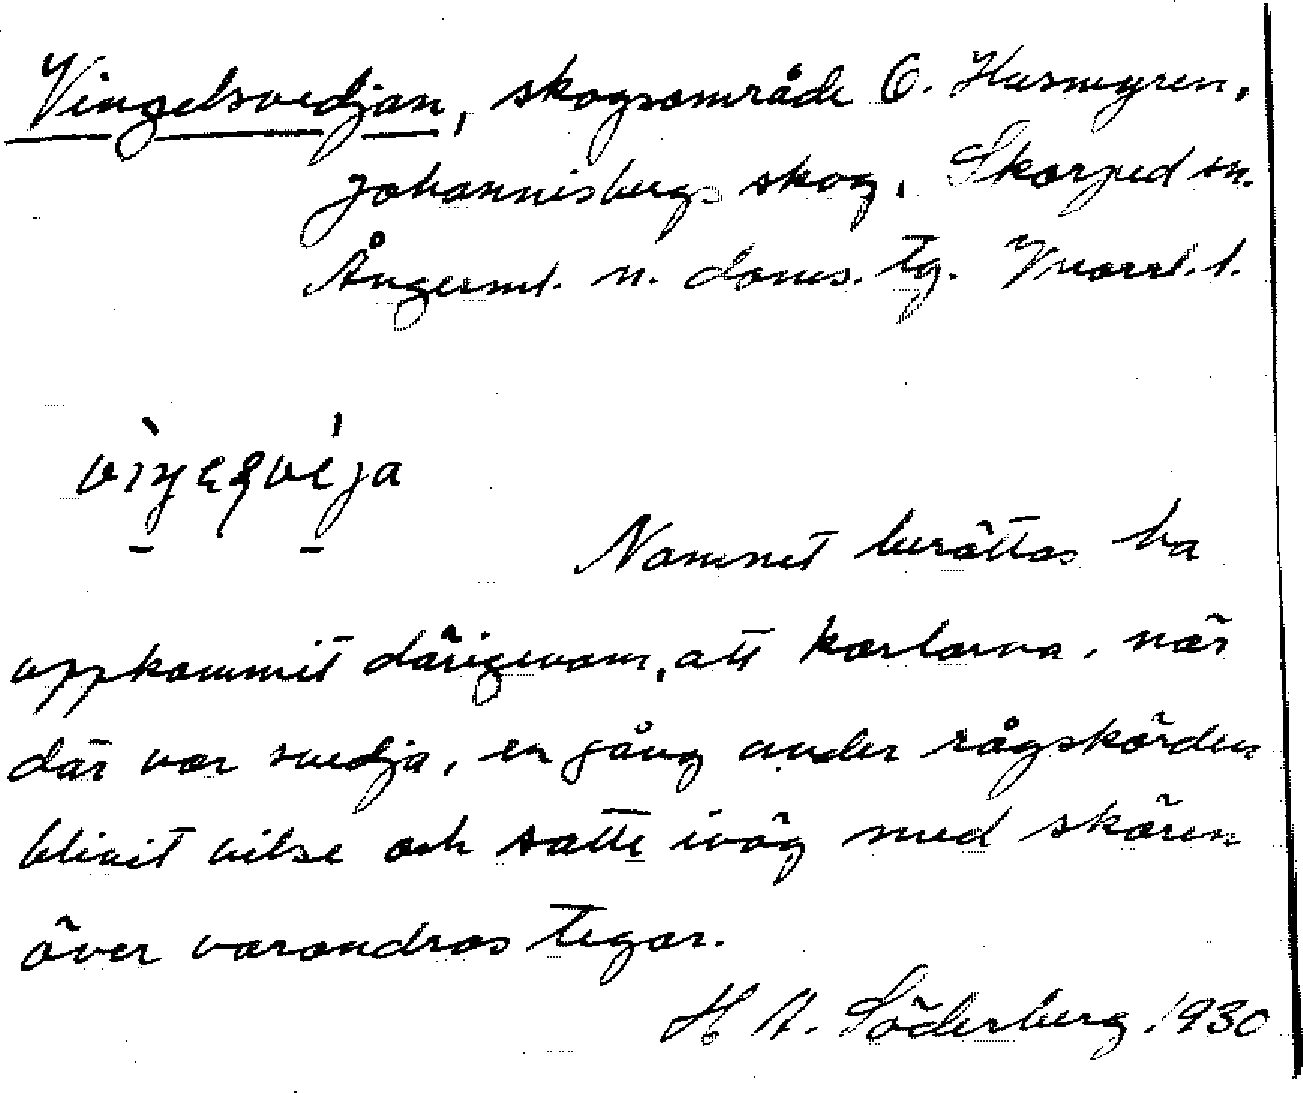 Vingelsvedjan, skogsområde Ö. Husmyren,
Johannisbergs skog. Skorped sn.
Ångerml. n. doms. tg. Norrl. l.
Namnet berättas ha
uppkommit därigenom, att karlarna, när
där var svedja, en gång under rågskörden
blivit vilse och satte iväg med skären
över varandras tegar.
H A. Söderberg 1930